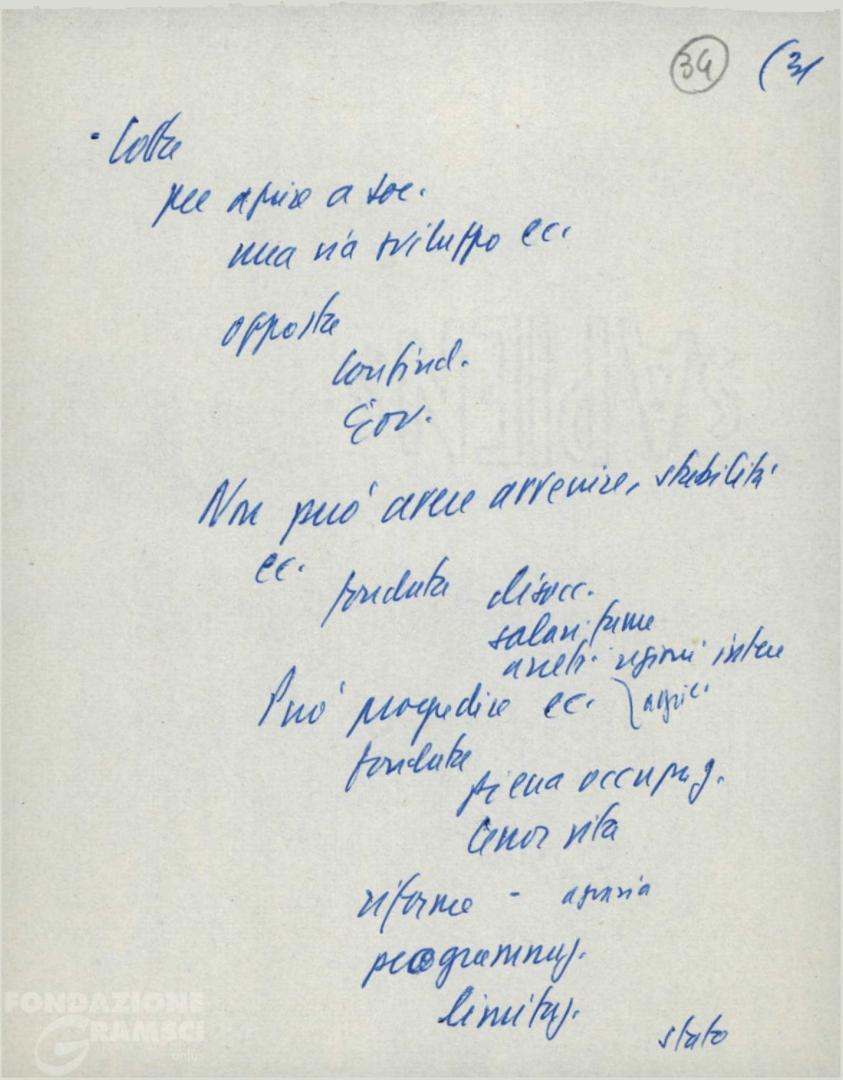 34 (3/
- Lotta
per aprire a soc.
una via sviluppo ec.
opposta
Confind.
Gov.
Non può avere avvenire, stabilità
ec.
fondata disocc.
salari fame
arretr. regioni intere
Può progredire ec. agric.
fondata
piena occupaz.
tenor vita
riforme - agraria
programmaz.
limitaz.
stato
FONDAZIONE
GRAMSCI